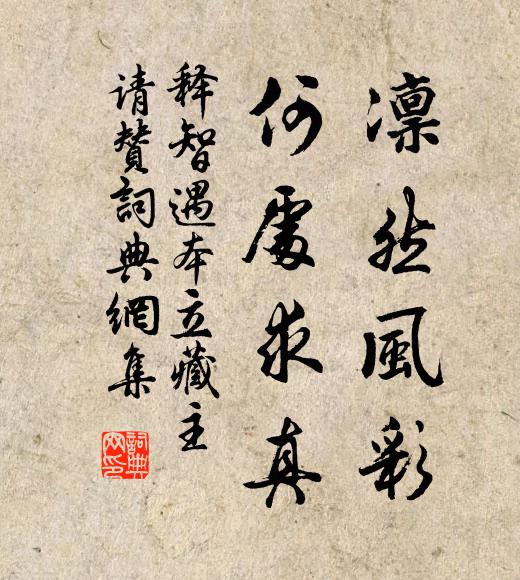 凛然風彩
何處求真
释智遇本立藏主
请賛詞典網集
詞典
網印